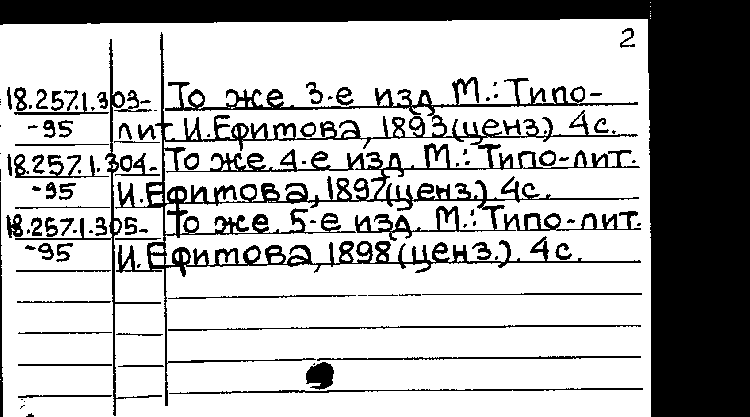 2
18.257.1.303- То же. 3-е изд М.: Типо-
-95 лит И.Ефитова, 1893(ценз.) 4с.
18.257.1.304- То же. 4-е изд. М.: Типо-лит.
-95 И.Ефитова, 1897(ценз.) 4с.
18.257.1.305- То же. 5-е изд. М.: Типо-лит.
-95 И.Ефитова, 1898(ценз.). 4с.